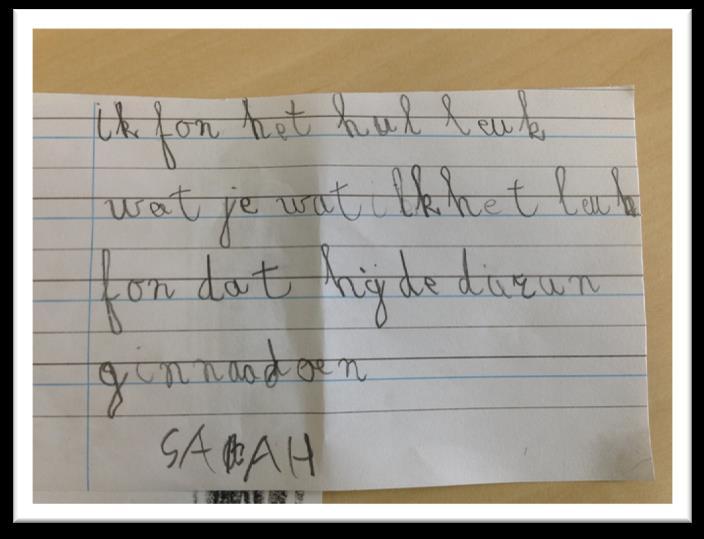 ik fon het hul leuk
wat je wat ik het leuk
fon dat hij de dürun
ginnaadoen
SARAH